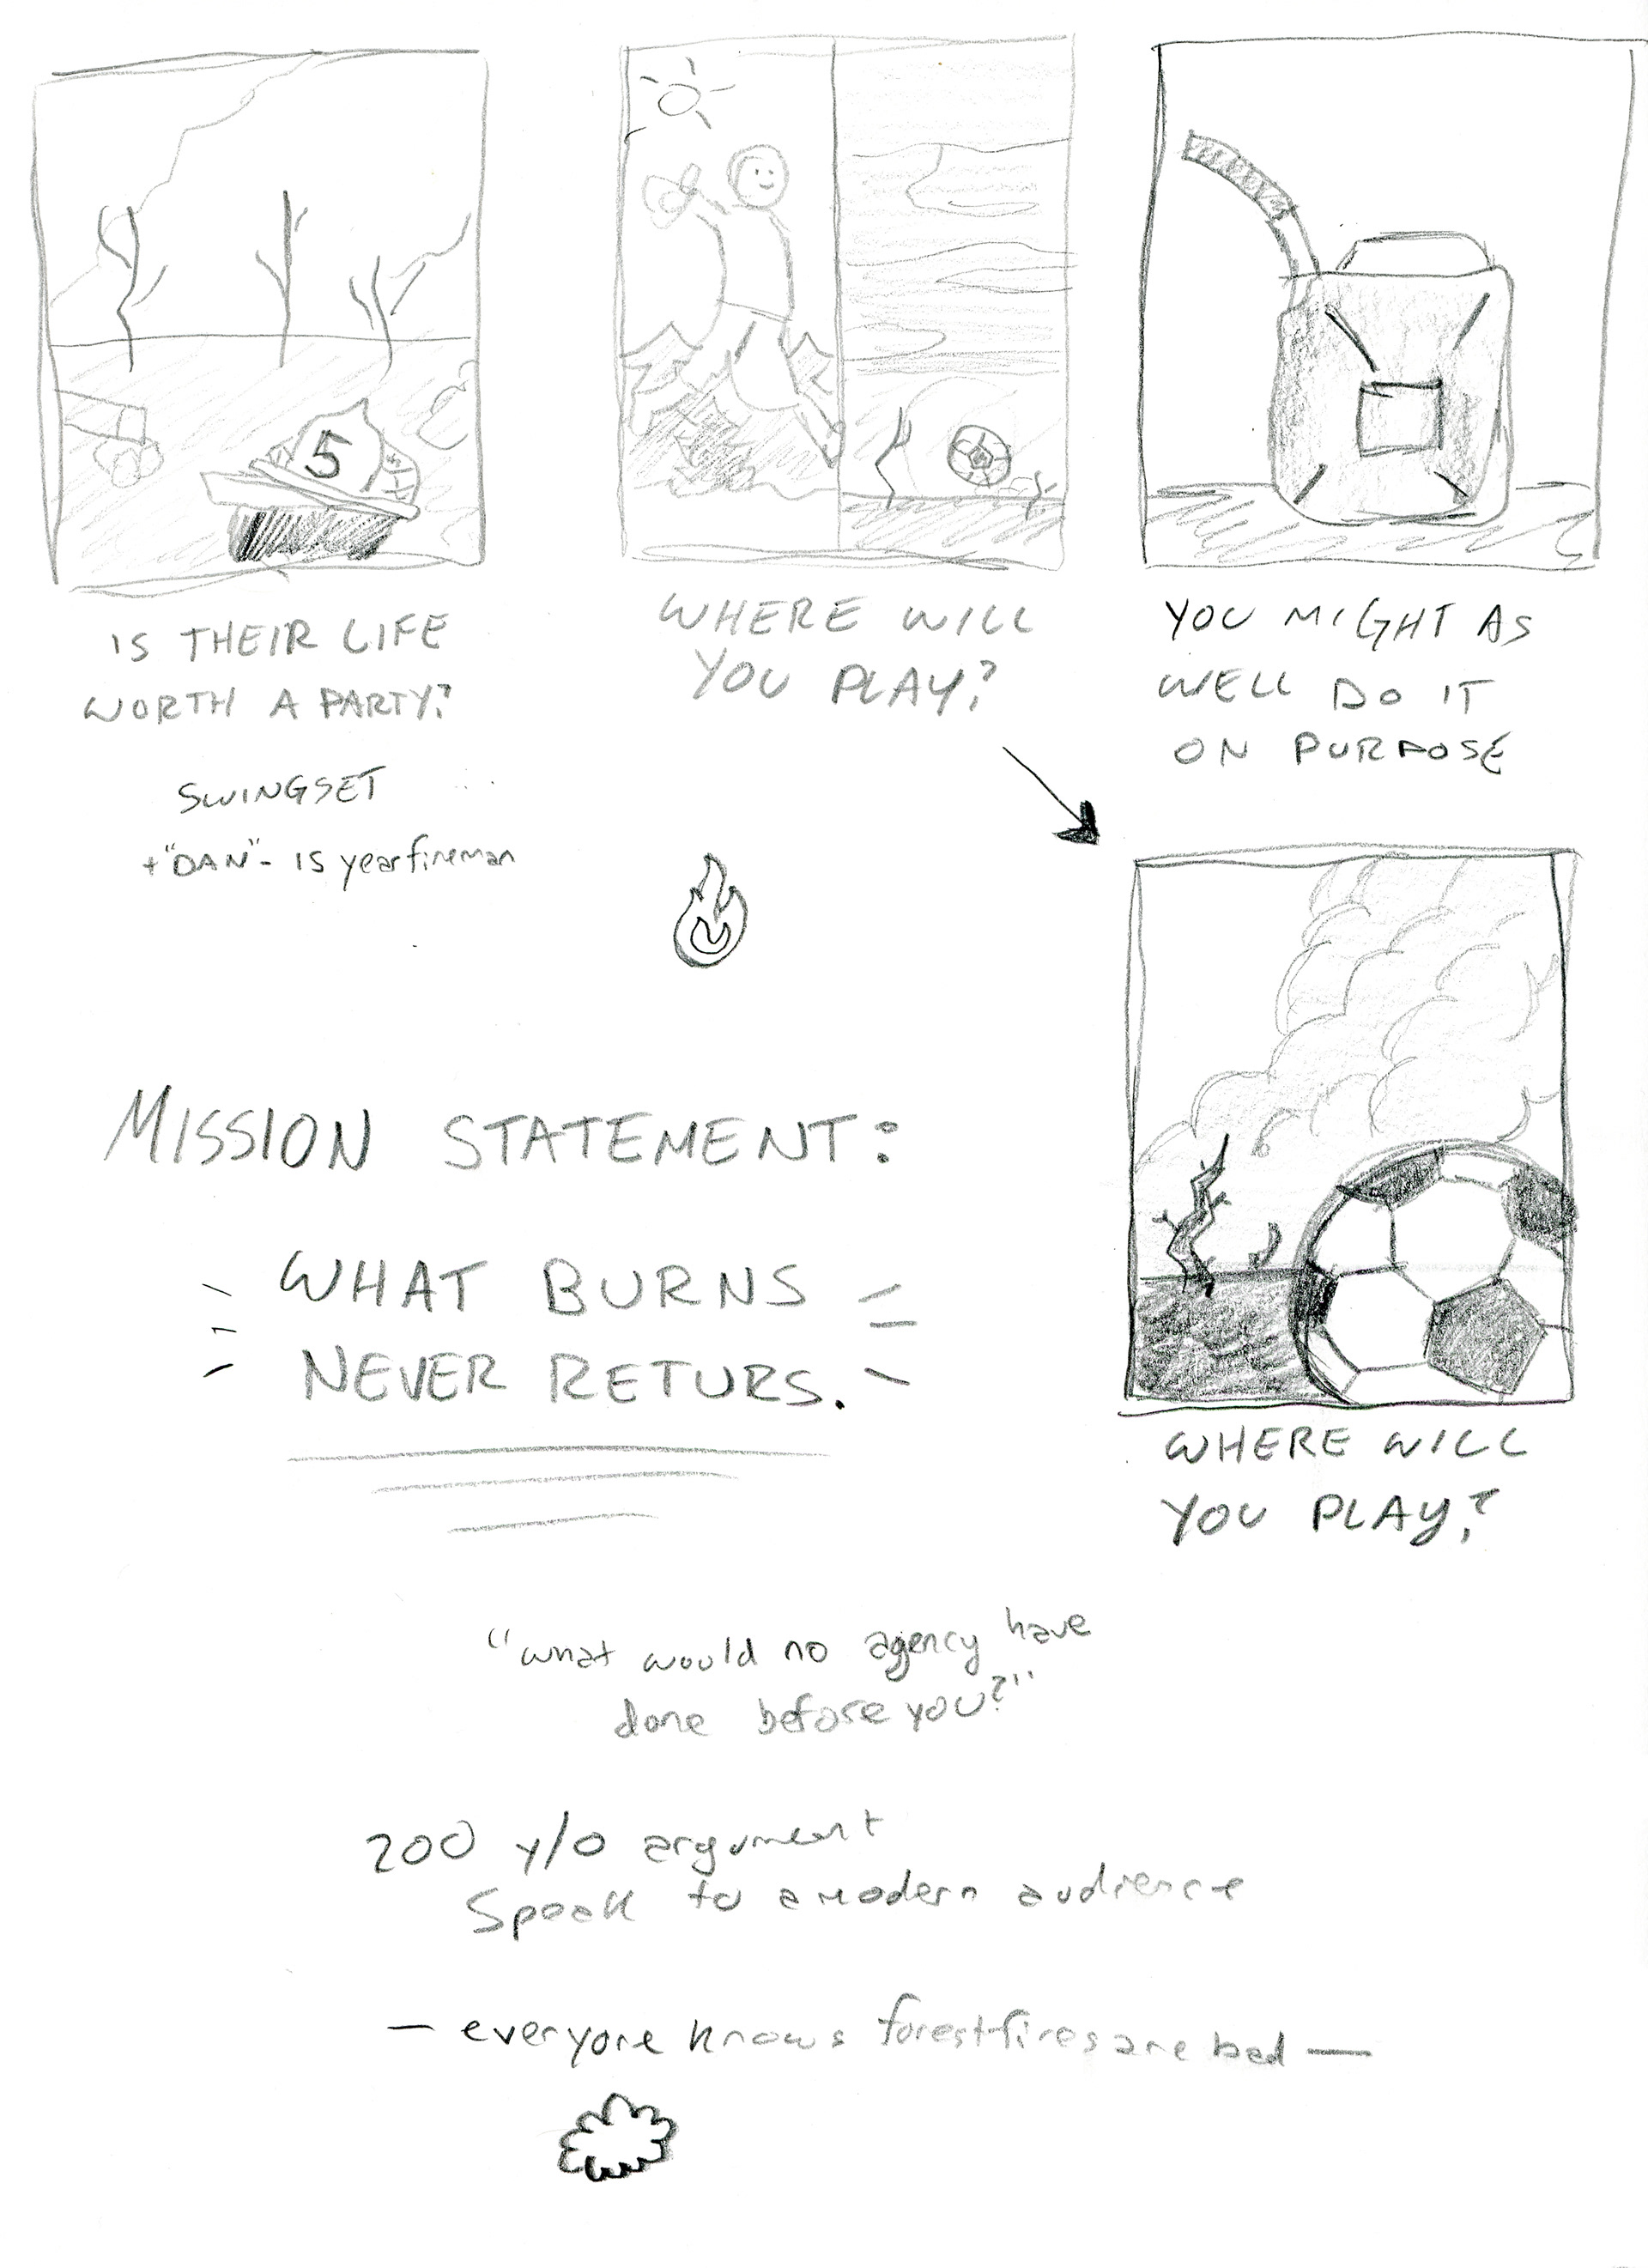 5
IS THEIR LIFE
WORTH A PARTY?
SWINGSET
+"DAN"- IS year fireman
WHERE WILL
YOU PLAY?
YOU MIGHT AS
WELL DO IT
ON PURPOSE
MISSION STATEMENT:
WHAT BURNS
NEVER RETURS.
WHERE WILL
YOU PLAY?
"what would no agency have
done before you?"
200 y/o argument
Speak to a modern audience
— everyone knows forest fires are bad —